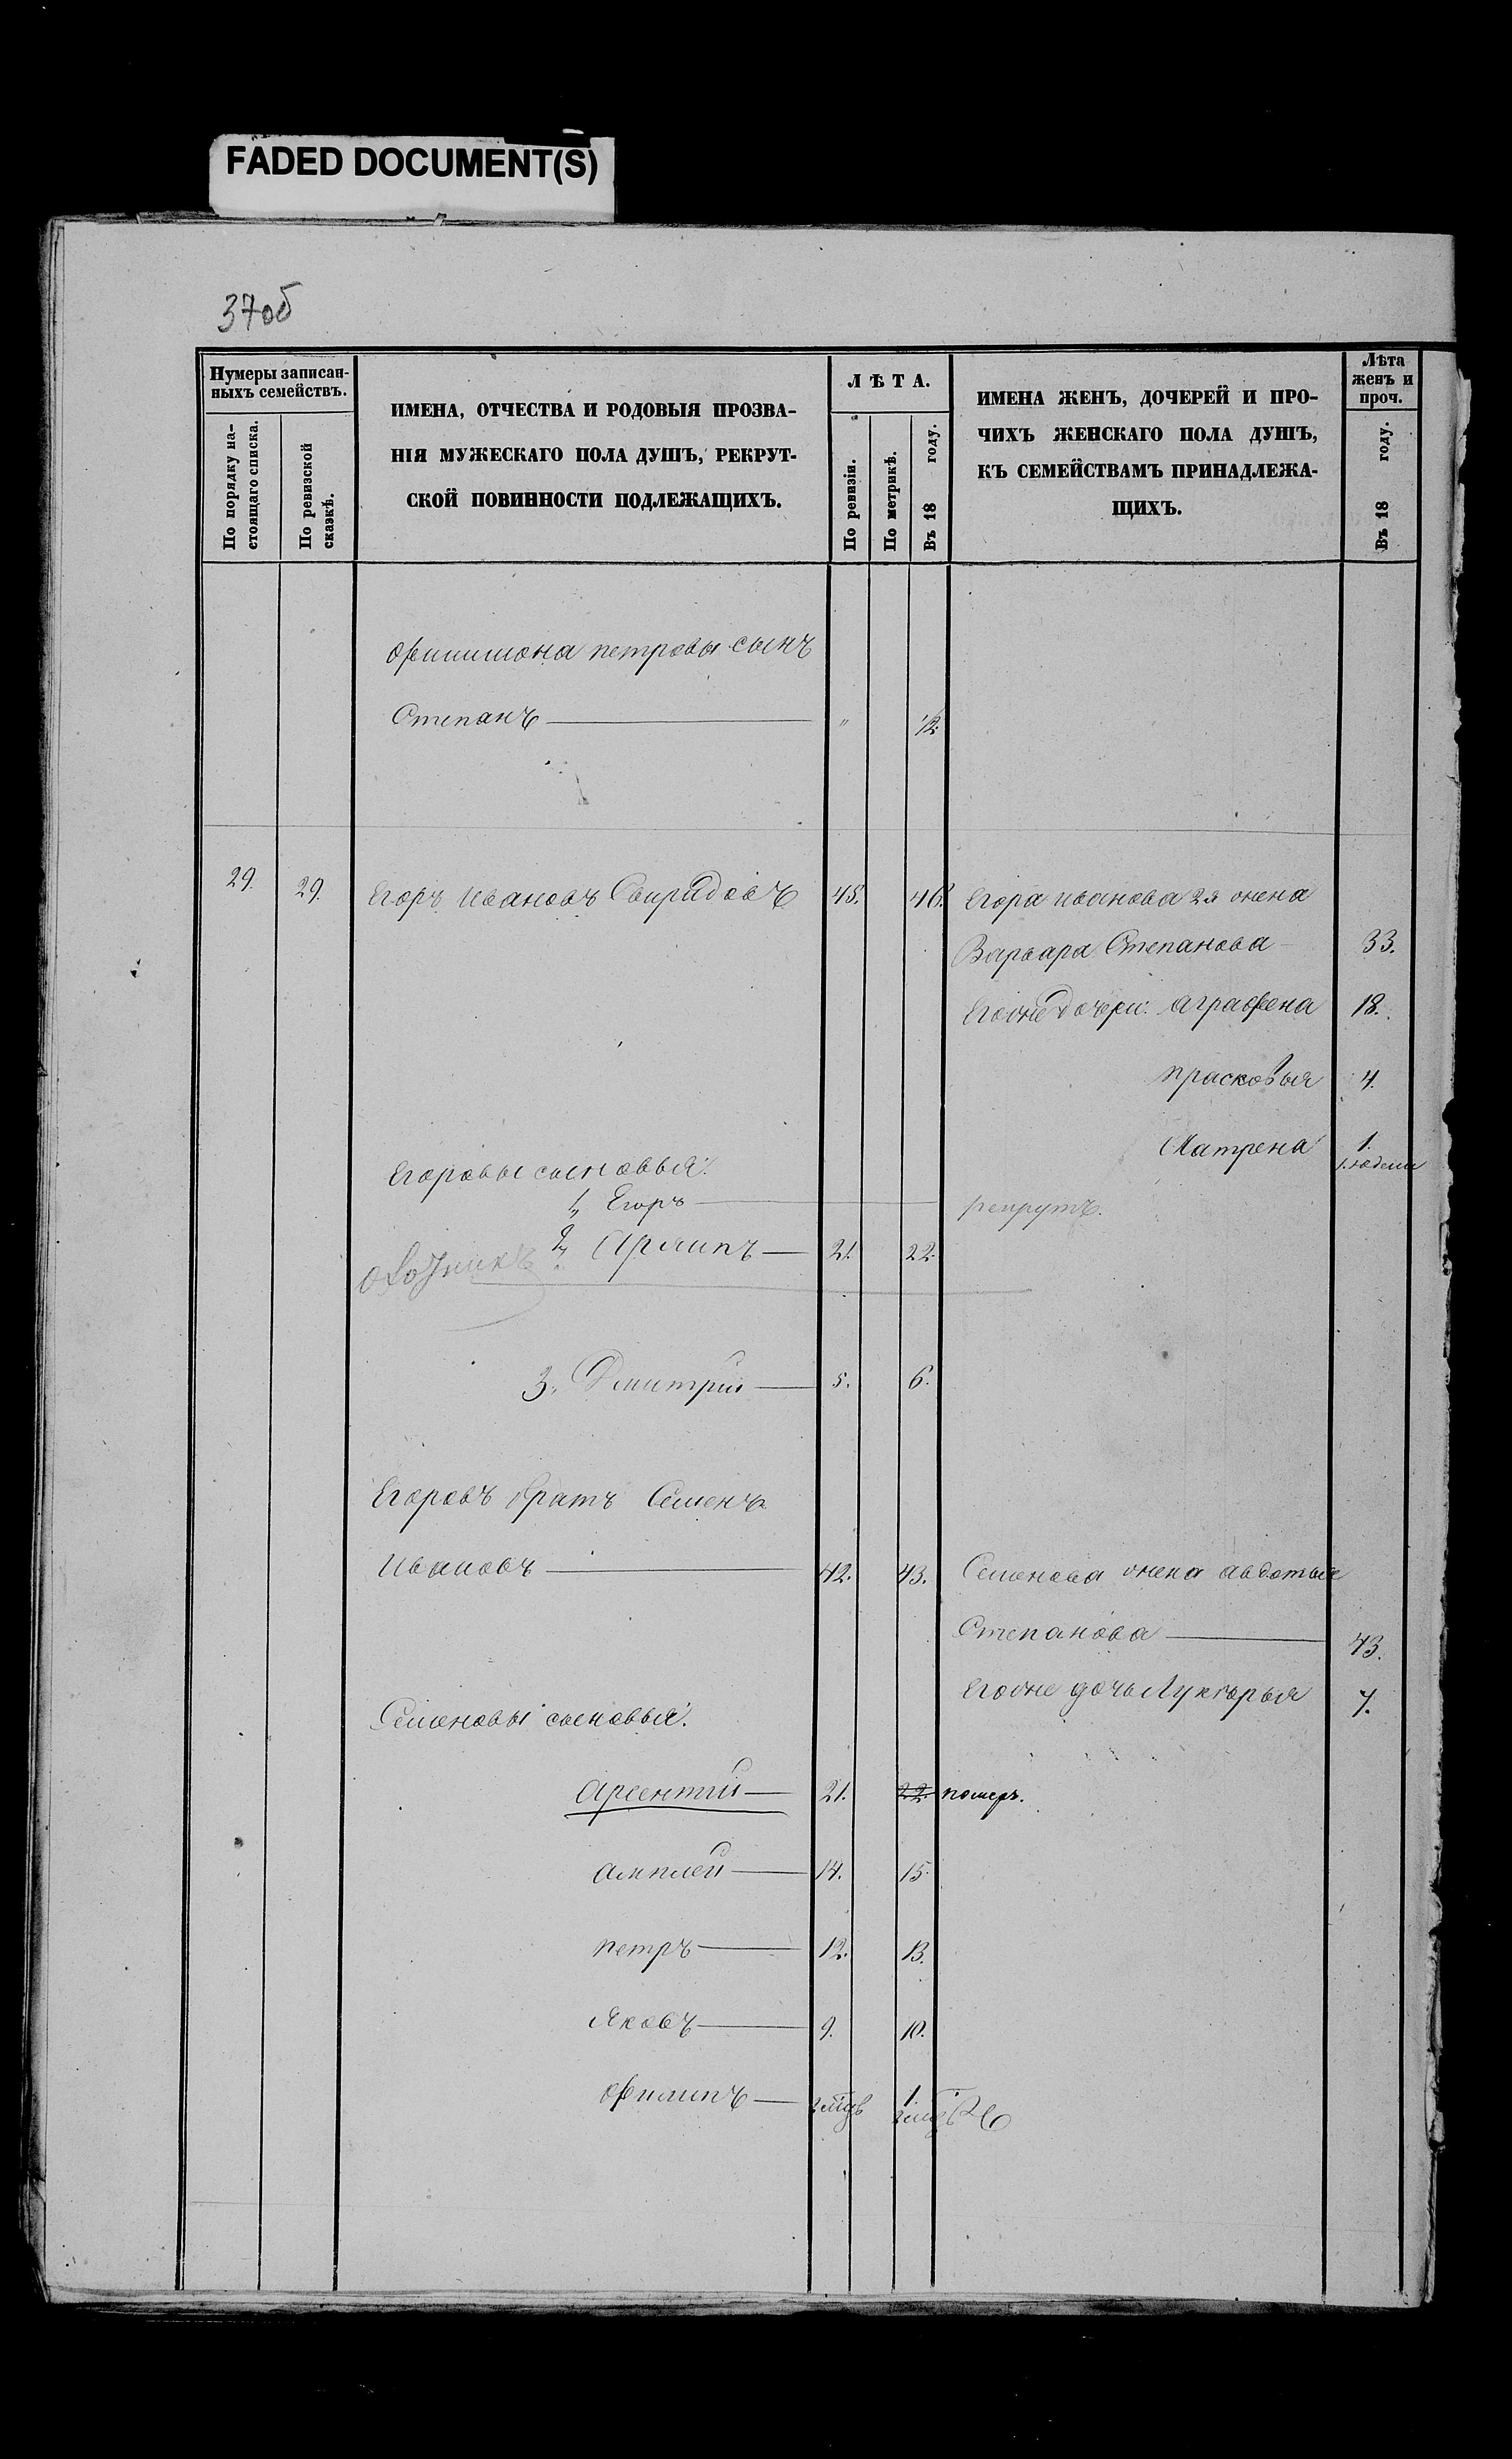 FADED DOCUMENT(S)
37об
Нумеры записан-
ныхъ семействъ.
По порядку на-
стоящаго списка.
По ревизской
сказкѣ.
ИМЕНА, ОТЧЕСТВА И РОДОВЫЯ ПРОЗВА-
НІЯ МУЖЕСКАГО ПОЛА ДУШЪ, РЕКРУТ-
СКОЙ ПОВИННОСТИ ПОДЛЕЖАЩИХЪ.
ЛѢТА.
По ревизіи.
По метрикѣ.
Въ 18 году.
ИМЕНА ЖЕНЪ, ДОЧЕРЕЙ И ПРО-
ЧИХЪ ЖЕНСКАГО ПОЛА ДУШЪ,
КЪ СЕМЕЙСТВАМЪ ПРИНАДЛЕЖА-
ЩИХЪ.
Лѣта
женъ и
проч.
Въ 18 году.
Филимона петровы сынъ
Степанъ — " 12.
29. 29. Егоръ Ивановъ Свиридовъ 45. 46. Егора иванова 2я жена
Варвара Степанова 33.
Егожне дочери: аграфена 18.
прасковья 4.
Матрена 1.
Егоровы сыновья:
1, Егоръ — рекрутъ.
2, Архипъ — 21. 22.
охотникъ
3, Дмитрій — 5. 6.
Егоровъ братъ Семенъ
Ивановъ — 42. 43. Семенова жена авдотья
Степанова — 43.
Егожне дочь Лукерья 7.
Семеновы сыновья:
арсентій — 21. 22. померъ.
14. 15.
петръ — 12. 13.
Яковъ — 9. 10.
Филипъ — 1.